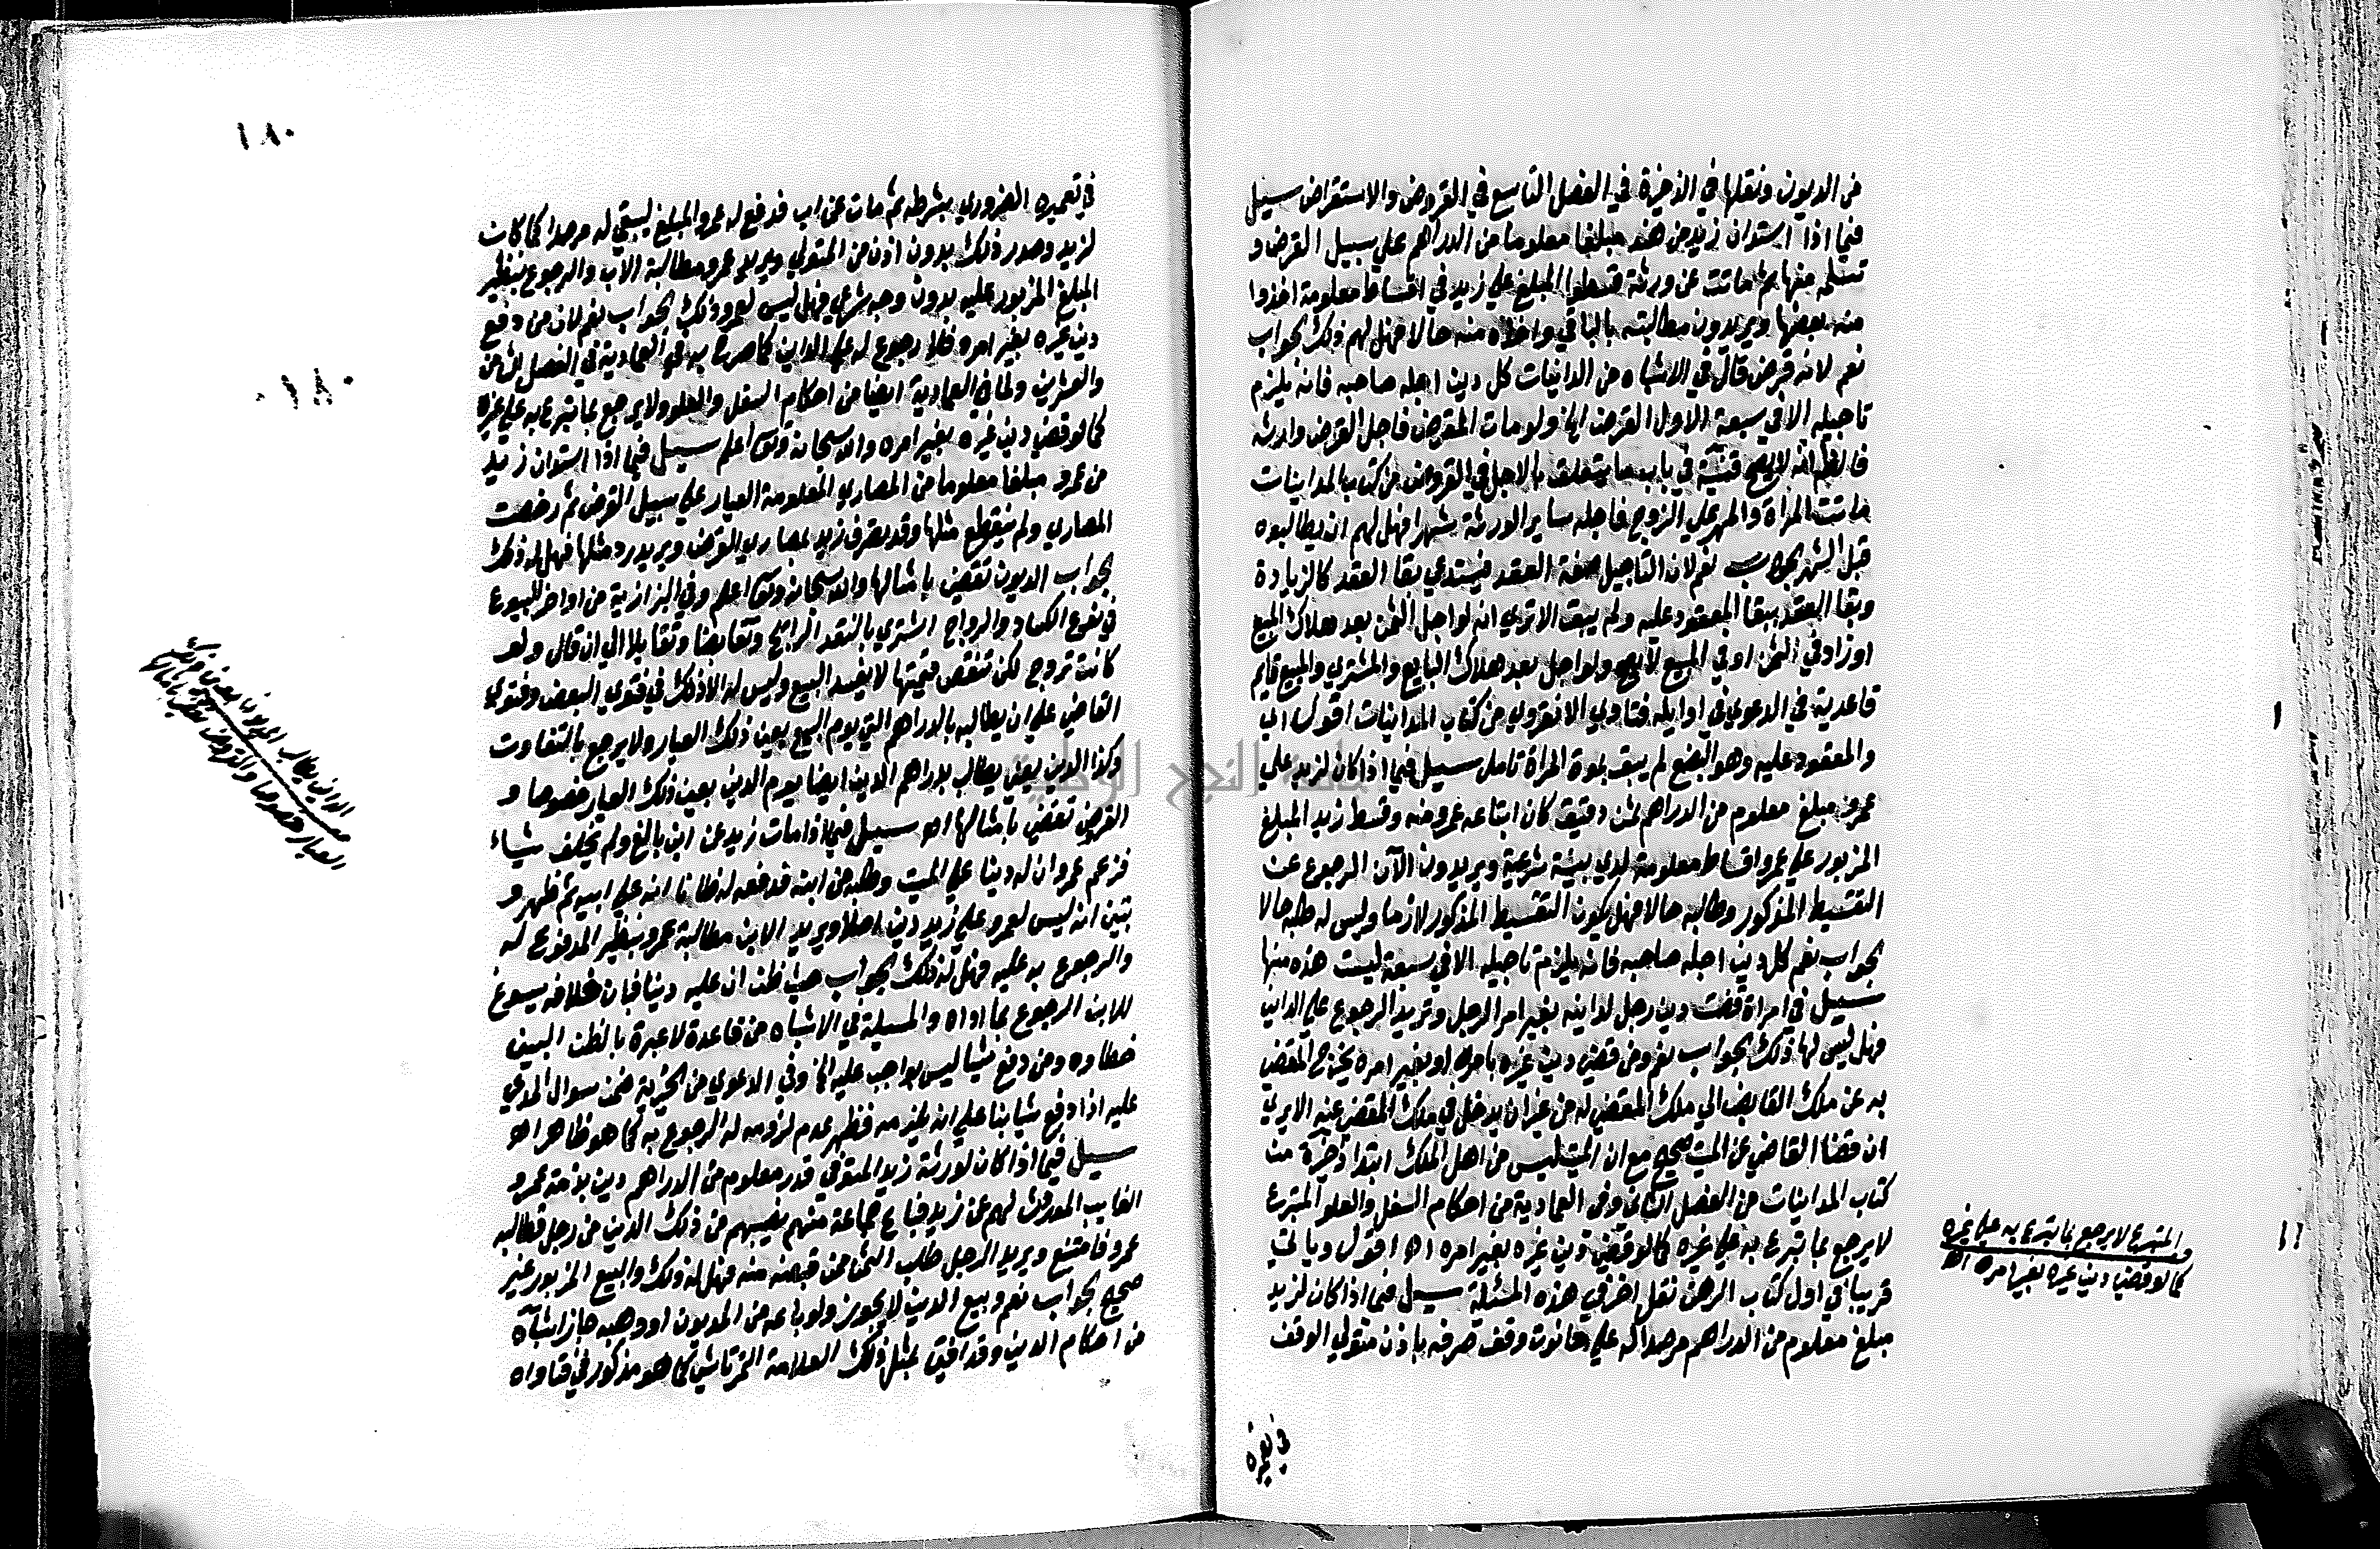 من الديون ونقلها في الذخيرة في الفصل التاسع في القروض والاستقراض سيل
فيما اذا استدان زيد من هند مبلغا معلوما من الدراهم علي سبيل القرض و
تسلمه منها ثم ماتت عن ورثة قسطوا المبلغ علي زيد في اقساط معلومة اخذوا
منه بعضها ويريدون مطالبته بالباقي واخذه منه حالا فهل لهم ذلك الجواب
نعم لانه قرض قال في الاشباه من المداينات كل دين اجله صاحبه فانه يلزم
تاجيله الا في سبعة الاول القرض الخ ولو مات المقرض فاجل القرض وارثه
فالظاهر انه لا يصح قنية في باب ما يتعلق بالاجل في القروض من كتاب المداينات
ماتت المراة والمهر علي الزوج فاجله ساير الورثة شهرا فهل لهم ان يطالبوه
قبل الشهر الجواب نعم لان التاجيل صفة العقد فيستدعي بقا العقد كالزيادة
وبقا العقد ببقا المعقود عليه ولم يبق الا تري انه لو اجل الثمن بعد هلاك المبيع
او زاد في الثمن او في المبيع لا يصح ولو اجل بعد هلاك البايع والمشتري والمبيع قايم
قاعدية في الدعوي في اوايله فتاوي الانقروي من كتاب المداينات اقول اي
والمعقود عليه وهو البضع لم يبق بموة المراة تامل سيل فيما اذا كان لزيد علي
عمرو مبلغ معلوم من الدراهم ثمن دقيق كان ابتاعه عمرو منه وقسط زيد المبلغ
المزبور علي عمرو اقساط معلومة لدي بينة شرعية ويريدون الآن الرجوع عن
التقسيط المذكور وطالبه حالا فهل يكون التقسيط المذكور لازما وليس له طلبه حالا
الجواب نعم كل دين اجله صاحبه فانه يلزم تاجيله الا في سبعة ليست هذه منها
سيل في امراة قضت دين رجل لداينه بغير امر الرجل وتريد الرجوع علي الداين
فهل ليس لها ذلك الجواب نعم ومن قضي دين غيره بامره او بغير امره يخرج المقضي
به عن ملك القابض الي ملك المقضي له من غير ان يدخل في ملك المقضي عنه الا يري
ان قضا القاضي عن الميت صحيح مع ان الميت ليس من اهل الملك ابتدا ذخيرة من
كتاب المداينات من الفصل الثاني وفي العمادية من احكام السفل والعلو المتبرع
لا يرجع بما تبرع به علي غيره كما لو قضي دين غيره بغير امره اه اقول وياتي
قريبا في اول كتاب الرهن نقل اخر في هذه المسئلة سيل فيما اذا كان لزيد
مبلغ معلوم من الدراهم مرصدا له علي حانوت وقف صرفه باذن متولي الوقف
في تعميره
المتبرع لا يرجع بما تبرع به علي غيره
كما لو قضي دين غيره بغير امره اه
١٨٠
١٨٠
في تعميره الضروري بشرطه ثم مات عن اب فدفع له عمرو المبلغ ليبقي له مرصدا كما كانت
لزيد وصدر ذلك بدون اذن من المتولي ويريد عمرو مطالبة الاب والرجوع بنظير
المبلغ المزبور عليه بدون وجه شرعي فهل ليس لعمرو ذلك الجواب نعم لان من دفع
دين غيره بغير امره فلا رجوع له علي الداين كما صرح به في العمادية في الفصل الثامن
والعشرين ولما في العمادية ايضا من احكام السفل والعلو ولا يرجع بما تبرع به علي غيره
كما لو قضي دين غيره بغير امره والله سبحانه وتعالى اعلم سيل فيما اذا استدان زيد
من عمرو مبلغا معلوما من المصاري المعلومة العيار علي سبيل القرض ثم رخصت
المصاري ولم ينقطع مثلها وقد تصرف زيد بمصاري القرض ويريد رد مثلها فهل له ذلك
الجواب الديون تقضي بامثالها والله سبحانه وتعالى اعلم وفي البزازية من اواخر البيوع
في نوع الكساد والرواج اشتري بالنقد الرائج وتقابضا وتقايلا الي ان قال ولو
كانت تروج لكن تنقص قيمتها لا يفسد البيع وليس له الا ذلك في فتوي البعض وفتوي
القاضي علي ان يطالبه بالدراهم التي يوم البيع بعين ذلك العيار ولا يرجع بالتفاوت
وكذا الدين يعني يطالب بدراهم الدين ايضا يوم الدين بعين ذلك العيار خصوصا و
القرض تقضي بامثالها اه سيل فيما اذا مات زيد عن ابن بالغ ولم يخلف شياء
فزعم عمرو ان له دينا علي الميت وطلبه من ابنه فدفعه له ظانا انه علي ابيه ثم ظهر و
تبين انه ليس لعمرو علي زيد دين اصلا ويريد الابن مطالبة عمرو بنظير المدفوع له
والرجوع به عليه فهل له ذلك الجواب حيث ظن ان عليه دينا فبان خلافه يسوغ
للابن الرجوع بما اداه والمسيلة في الاشباه من قاعدة لا عبرة بالظن البين
خطاوه ومن دفع شيا ليس بواجب عليه الخ وفي الدعوي من الخيرية ضمن سوال المدعي
عليه اذا دفع شيا بنا علي انه يلزمه فظهر عدم لزومه له الرجوع به كما هو ظاهر اه
سيل فيما اذا كان لورثة زيد المتوفي قدر معلوم من الدراهم دين بذمة عمرو
الغايب الموروث لهم عن زيد فباع جماعة منهم نصيبهم من ذلك الدين من رجل فطالبه
عمرو فامتنع ويريد الرجل طلب الثمن ممن قبضه منه فهل له ذلك والبيع المزبور غير
صحيح الجواب نعم وبيع الدين لا يجوز ولو باعه من المديون او وهبه جاز اشباه
من احكام الدين وقد افتي بمثل ذلك العلامة التمرتاشي كما هو مذكور في فتاواه